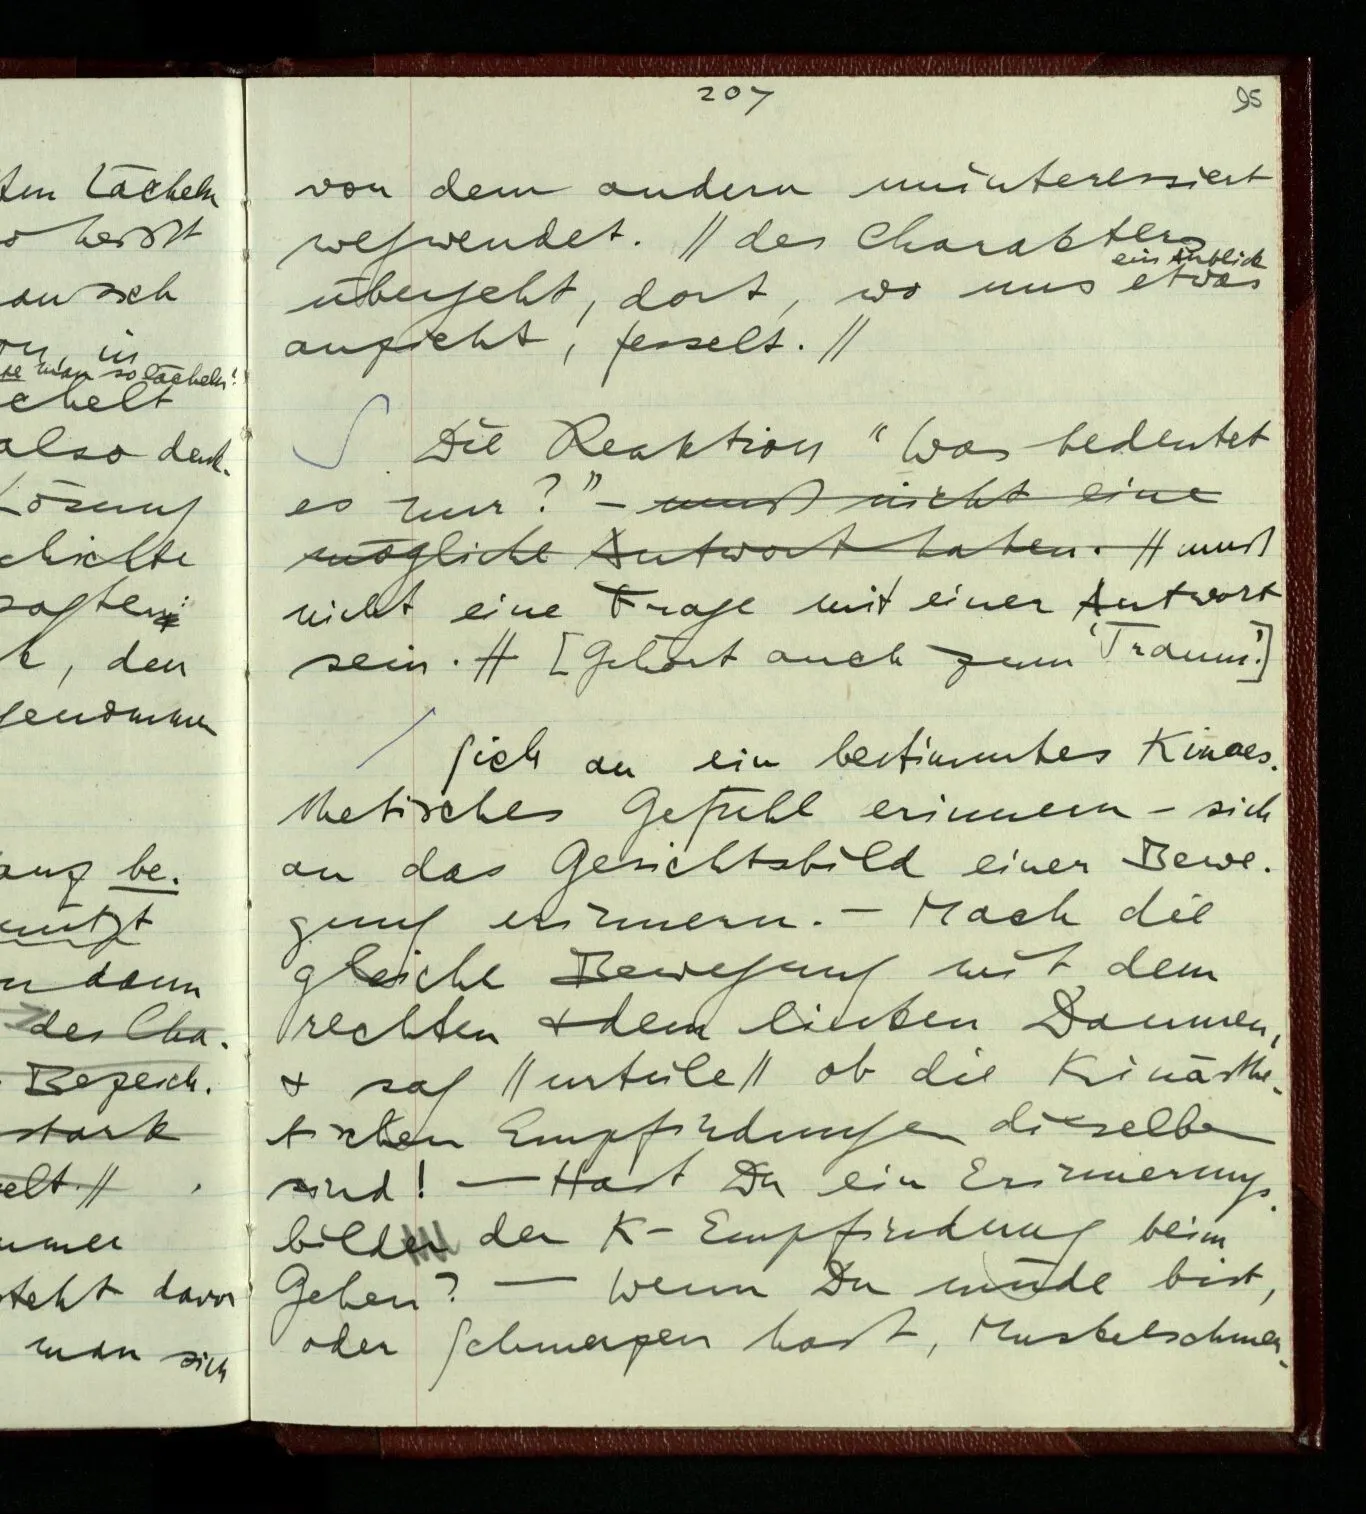 ten Lächeln
heisst
an sich
in
man so lächeln!
chelt
also denk-
Lösung
chichte
sagten:
, den
genommen
be-
nützt
dann
des Cha-
Bezeich-
stark
elt. //
immer
steht davor
man sich
207
95
von dem andern uninteressiert
wegwendet. // des Charakters
ein Anblick
übergeht, dort, wo uns etwas
anzieht, fesselt. //
∫ Die Reaktion “Was bedeutet
es nur?” – muß nicht eine
mögliche Antwort haben. // muß
nicht eine Frage mit einer Antwort
sein. // [Gehört auch zum ‘Traum’.]
/ Sich an ein bestimmtes Kinaes-
thetisches Gefühl erinnern – sich
an das Gesichtsbild einer Bewe-
gung erinnern. – Mach die
gleiche Bewegung mit dem
rechten & dem linken Daumen,
& sag // urteile // ob die Kinästhe-
tischen Empfindungen dieselben
sind! — Hast Du ein Erinnerungs-
bild der K-Empfindung beim
Gehen? — Wenn Du müde bist,
oder Schmerzen hast, Muskelschmer-